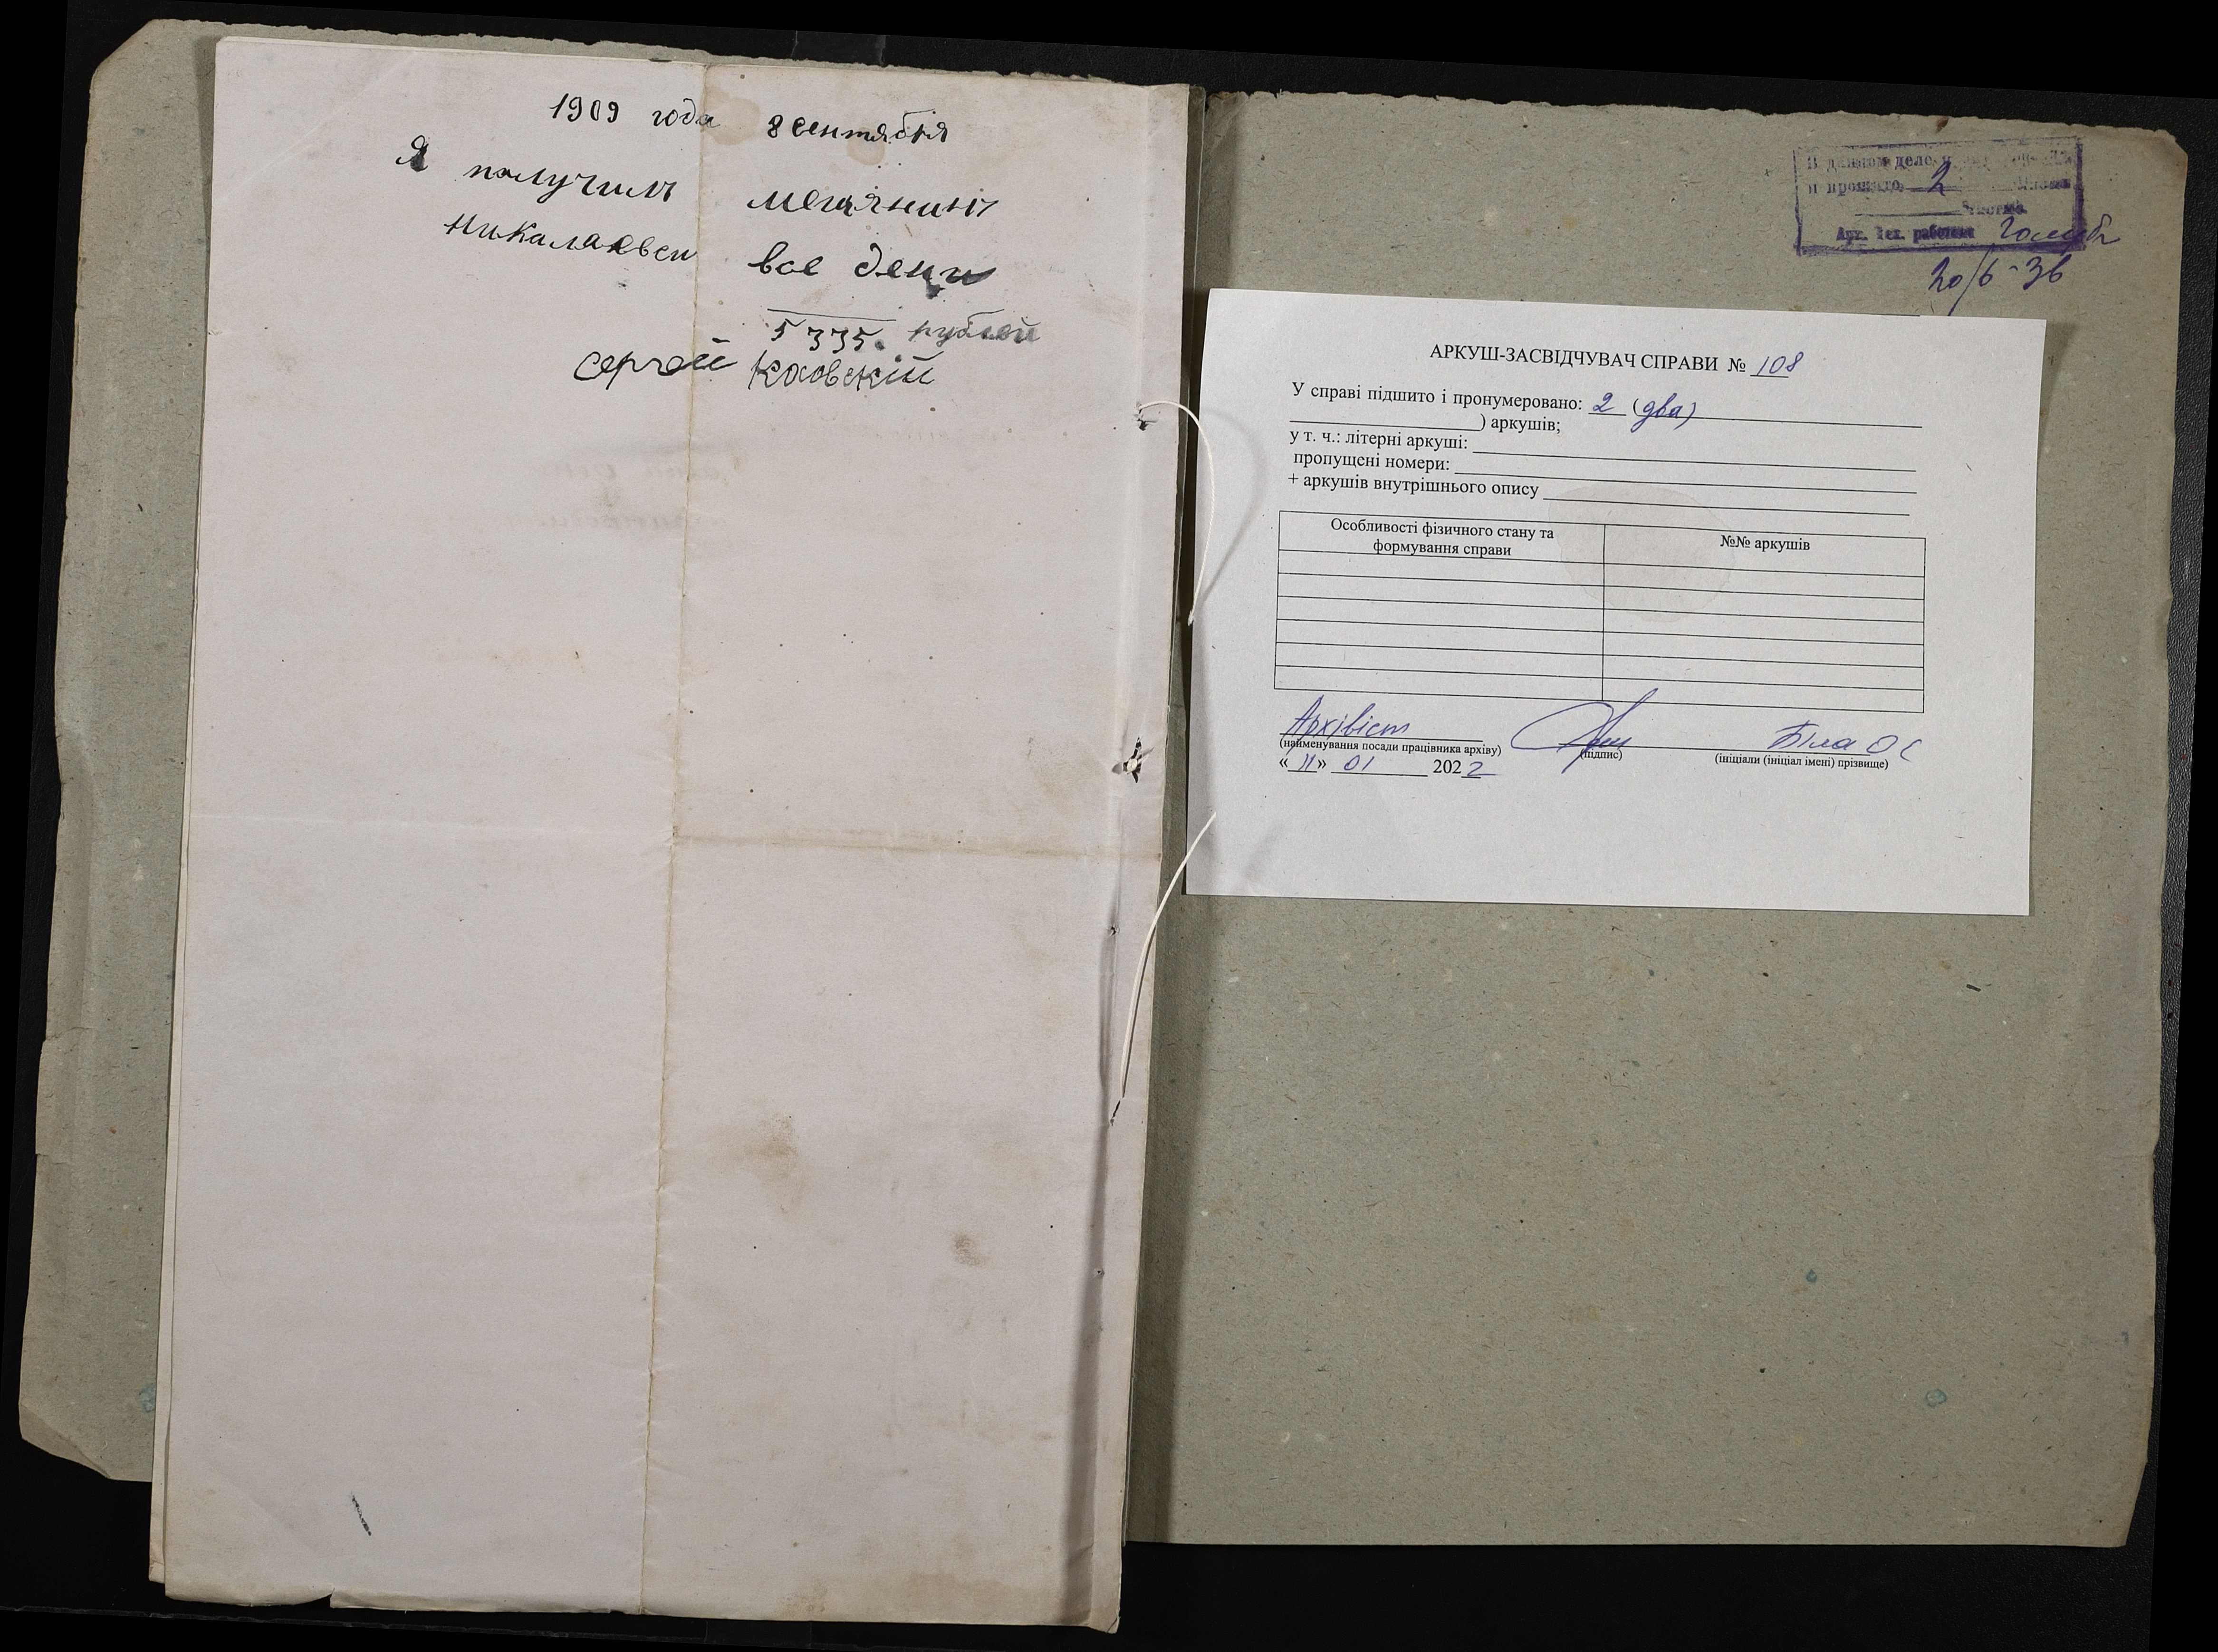 1909 года 8 сентября
Я получилъ мещянинъ
Николаевен все денги
5335. рублей
Сергей Коовскій
В данном деле
и прошито 2
Арх. тех. работник Голуб
20/6-36
АРКУШ-ЗАСВІДЧУВАЧ СПРАВИ № 108
У справі підшито і пронумеровано: 2 (два)
) аркушів;
у т. ч.: літерні аркуші:
пропущені номери:
+ аркушів внутрішнього опису
Особливості фізичного стану та формування справи
№№ аркушів
Архівіст Біла О С
(найменування посади працівника архіву) (підпис) (ініціали (ініціал імені) прізвище)
« 11 » 01 2022